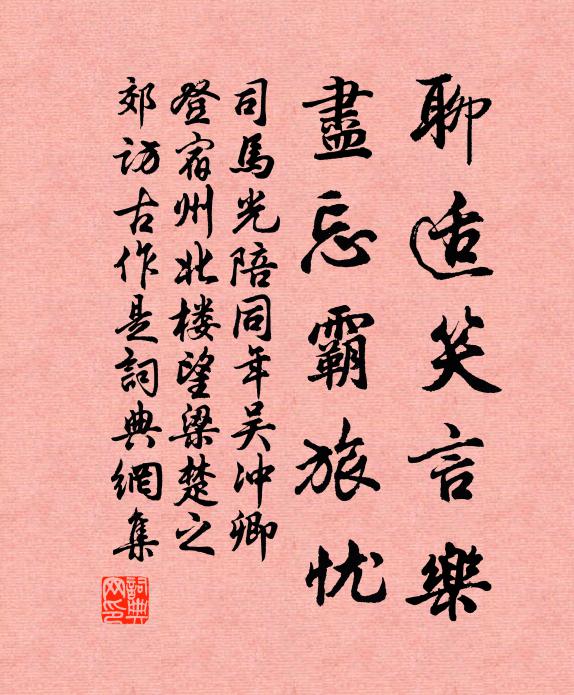 聊适笑言樂
盡忘霸旅忧
司馬光陪同年吴冲卿
登宿州北楼望梁楚之
郊访古作是詞典網集
詞典網印